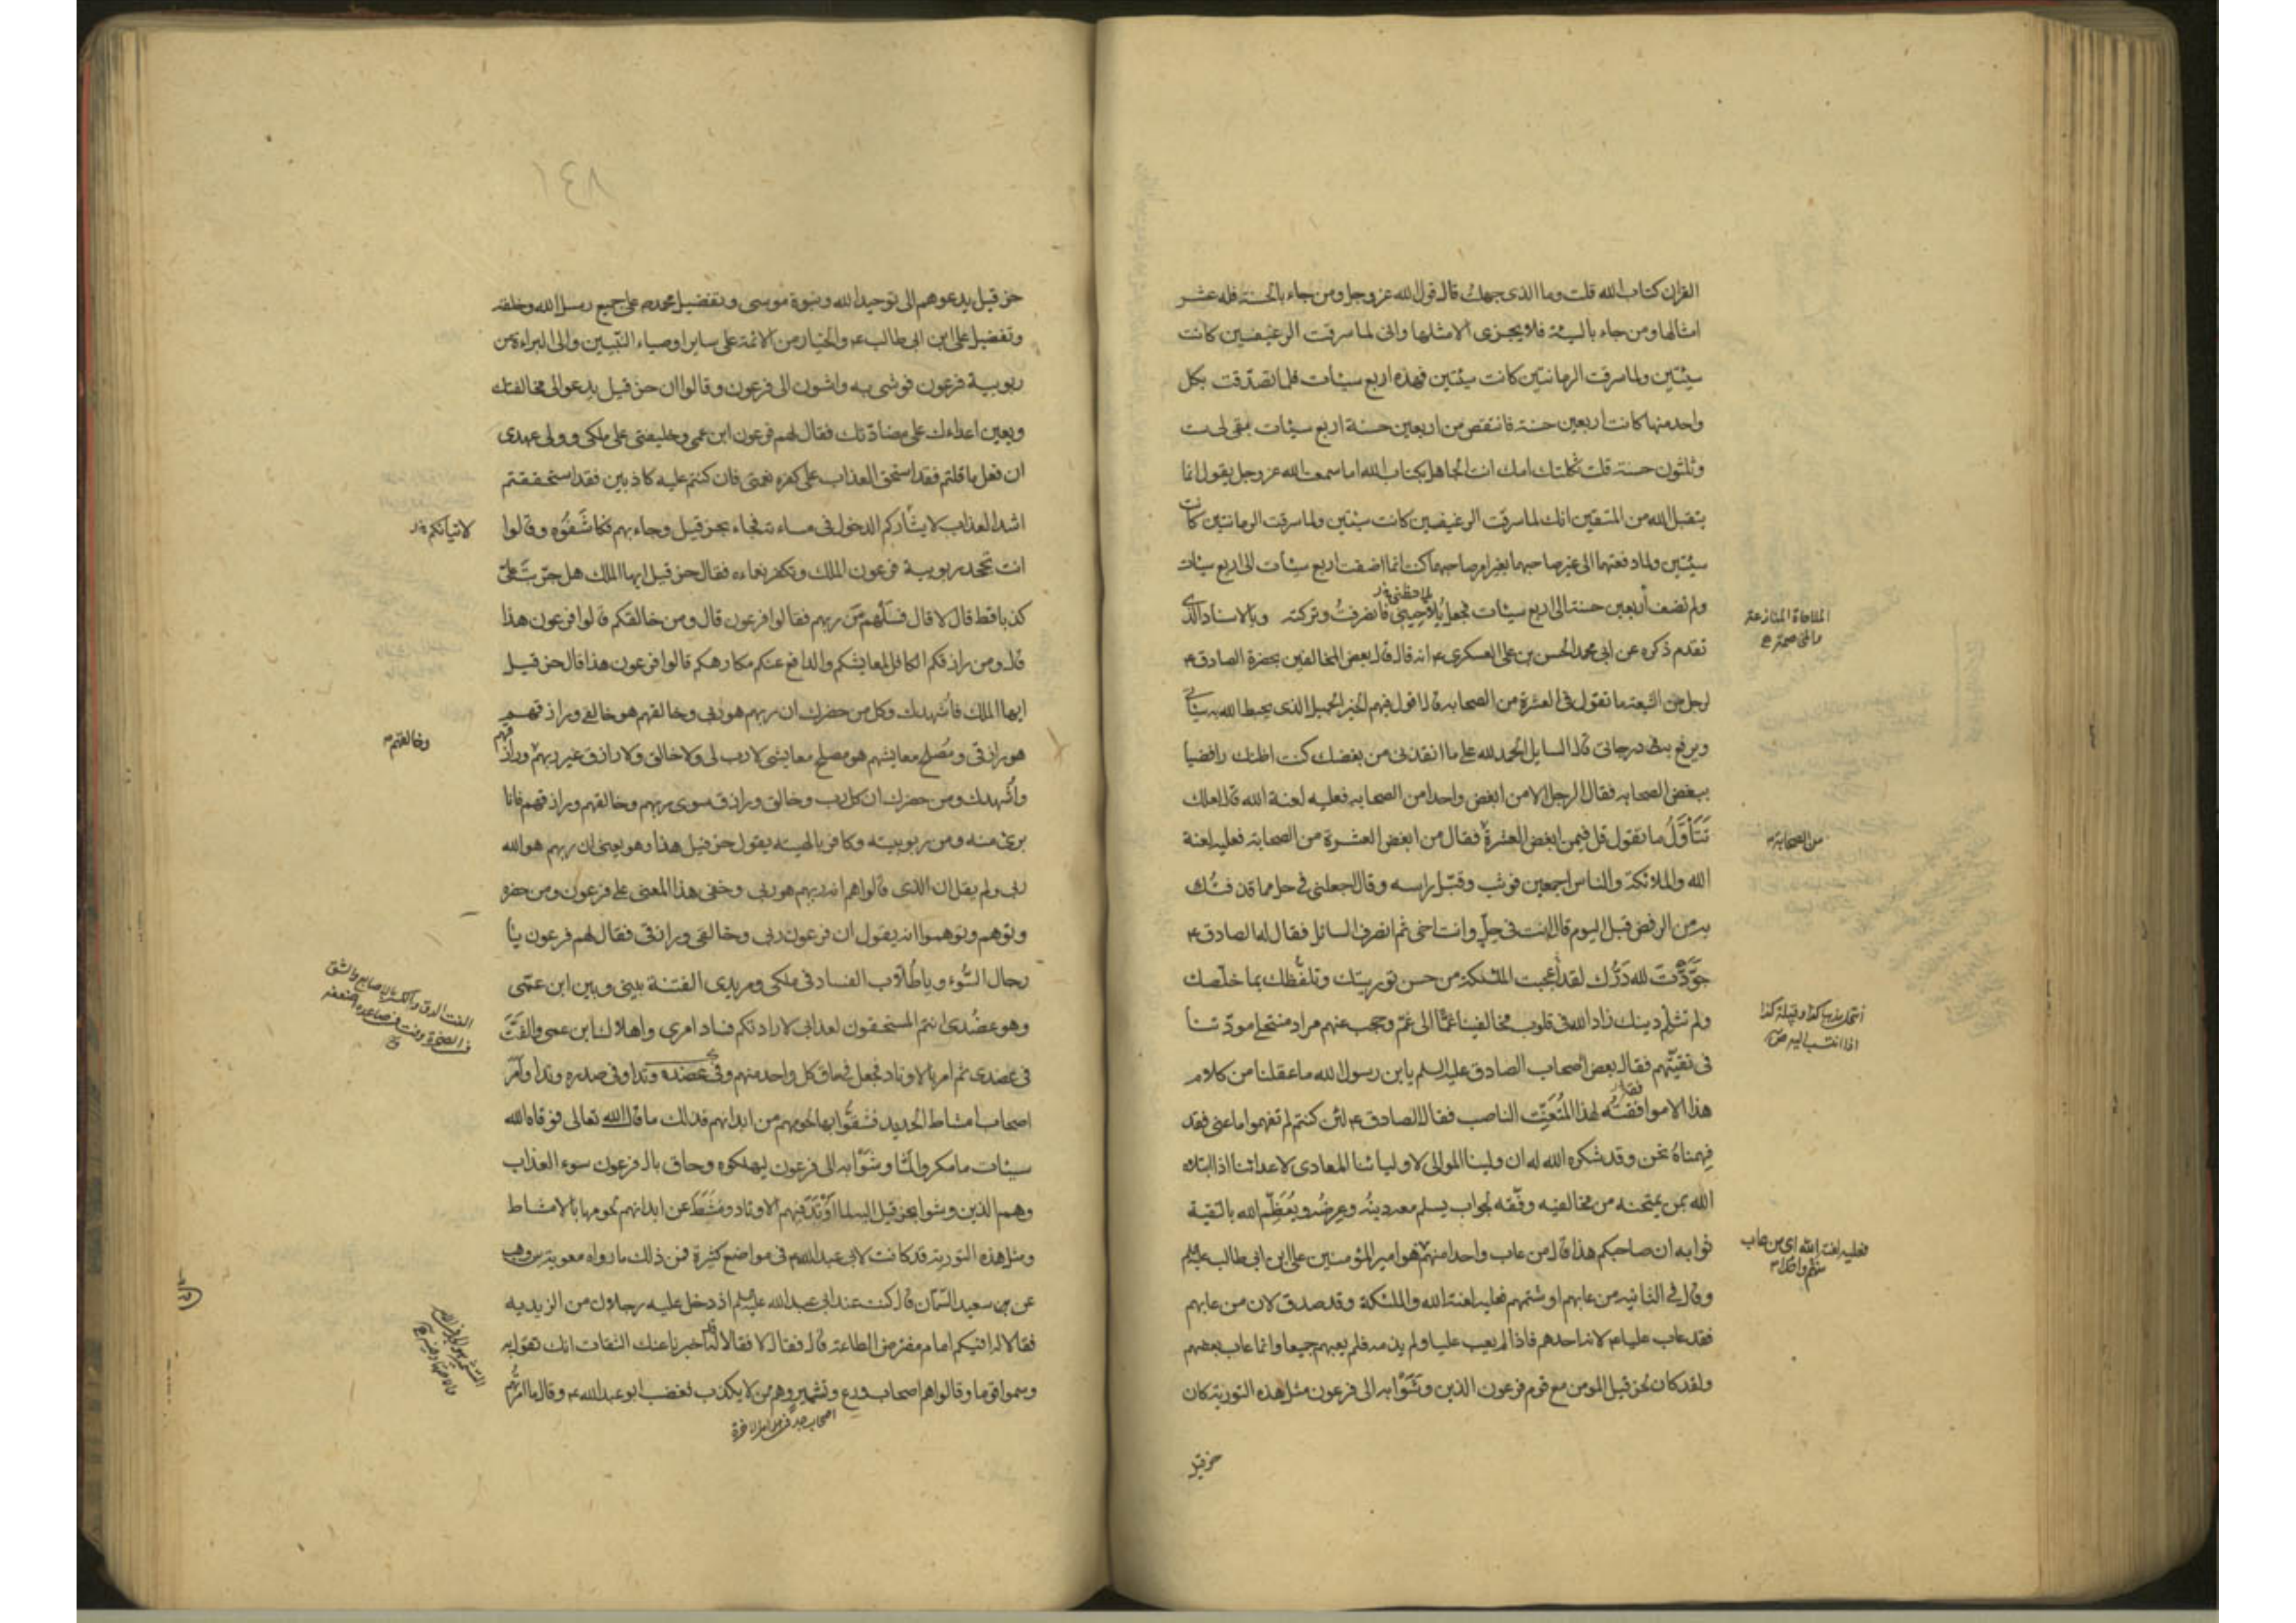 القران كتاب الله قلت وما الذى جهلت قال قول الله عز وجل ومن جاء بالحسنة فله عشر
امثالها ومن جاء بالسيئة فلا يجزى الا مثلها وانى لما سرقت الرغيفين كانت
سيئتين ولما سرقت الرمانتين كانت سيئتين فهذه اربع سيئات فلما تصدّقت بكل
واحد منها كانت اربعين حسنة فانتقص من اربعين حسنة اربع سيئات بقى لى ست
وثلثون حسنة قلت ثكلتك امك انت الجاهل بكتاب الله اما سمعت الله عز وجل يقول انما
يتقبل الله من المتقين انك لما سرقت الرغيفين كانت سيئتين ولما سرقت الرمانتين كانت
سيئتين ولما دفعتهما الى غير صاحبهما بغير امر صاحبهما كنت انما اضفت اربع سيئات الى اربع سيئات
ولم تضف أربعين حسنة الى اربع سيئات فجعل يُلاحِينى فانصرفتُ وتركته وبالاسناد الذى
يلاحظنى
الملاحاة المنازعة
والمخاصمة
تقدم ذكره عن ابى محمد الحسن بن على العسكرى ع انه قال قال بعض المخالفين بحضرة الصادق ع
لرجل من الشيعة ما تقول فى العشرة من الصحابة قال اقول فيهم الخير الجميل الذى يحبط الله به سيئاتى
ويرفع به فى درجاتى قال السايل الحمد لله على ما انقذنى من بغضك كنت اظنك رافضيا
ببغض الصحابه فقال الرجل الا من ابغض واحدا من الصحابه فعليه لعنة الله قال لعلك
تَتَأَوَّلُ ما تقول قل فيمن ابغض العشرة فقال من ابغض العشرة من الصحابة فعليه لعنة
من الصحابة
الله والملائكة والناس اجمعين فوثب وقبّل راسه وقال اجعلنى فى حل مما قذفتُك
به من الرفض قبل اليوم قال انت فى حِلٍّ وانت اخى ثم انصرف السائل فقال له الصادق ع
جَوَّدْتَ لله دَرُّك لقد أعجبت الملئكة من حسن توريتك وتلفّظك بما خلّصك
ولم تثلِم دينك زاد الله فى قلوب مخالفينا غمًّا الى غمّ وحجب عنهم مراد منتحلى مودّتنا
انتحل مذهب كذا وقبيلة كذا
اذا انتسب اليه ص
فى تقيّتهم فقال بعض أصحاب الصادق عليه السلم يا بن رسول الله ما عقلنا من كلام
هذا الا موافقتُه لهذا المُتَعَنِّت الناصب فقال الصادق ع لئن كنتم لم تفهموا ما عنى فقد
فهمناهُ نحن وقد شكره الله له ان ولينا الموالى لاوليائنا المعادى لاعدائنا اذا ابتلاه
الله بمن يمتحنه من مخالفيه وفّقه لجواب يسلم معه دينُه وعِرضُه ويُعَظِّم الله بالتقية
ثوابه ان صاحبكم هذا قال من عاب واحدا منهم هو امير المؤمنين على ابن ابى طالب عليلم
فعليه لعنة الله اى من عاب
منهم واحدا
وقال فى الثانيه من عابهم او شتمهم فعليه لعنة الله والملئكة وقد صدق لان من عابهم
فقد عاب عليا ع لانه احدهم فاذا لم يعب عليا ولم يذمه فلم يعبهم جميعا وانما عاب بعضهم
ولقد كان لحزقيل المومن مع قوم فرعون الذين وشَوْا به الى فرعون مثل هذه التورية كان
حزقيل
١٤٨
حزقيل يدعوهم الى توحيد الله ونبوة موسى وتفضيل محمد ص على جميع رسل الله وخلقه
وتفضيل على ابن ابى طالب ع والخيار من الائمة على ساير اوصياء النّبيّين والى البراءة من
ربوبية فرعون فوشى به واشون الى فرعون وقالوا ان حزقيل يدعو الى مخالفتك
ويعين اعداءك على مضادّتك فقال لهم فرعون ابن عمى وخليفتى على ملكى وولى عهدى
ان فعل ما قلتم فقد استحق العذاب على كفره نعمتى فان كنتم عليه كاذبين فقد استحققتم
اشد العذاب لايثاركم الدخول فى مساءته فجاء بحزقيل وجاء بهم فكاشَفُوه وقالوا
لاتيانكم
انت تجحد ربوبية فرعون الملك وتكفر نعماءه فقال حزقيل ايها الملك هل جرّبت علىّ
كذبا قط قال لا قال فسَلْهم مَن ربهم فقالوا فرعون قال ومن خالقكم قالوا فرعون هذا
قال ومن رازقكم الكافل لمعايشكم والدافع عنكم مكارهكم قالوا فرعون هذا قال حزقيل
ايها الملك فأشهدك وكل من حضرك ان ربهم هو ربى وخالقهم هو خالقى ورازقهم
هو رازقى ومُصلح معايشهم هو مصلح معايشى لا رب لى ولا خالق ولا رازق غير ربهم ورازقهم
وخالقهم
وأُشهدك ومن حضرك ان كل رب وخالق ورازق سوى ربهم وخالقهم ورازقهم فانا
برئ منه ومن ربوبيته وكافر بالهيته يقول حزقيل هذا وهو يعنى ان ربهم هو الله
ربى ولم يقل ان الذى قالوا هم انه ربهم هو ربى وخفى هذا المعنى على فرعون ومن حضره
وتوهم وتوهموا انه يقول ان فرعون ربى وخالقى ورازقى فقال لهم فرعون يا
رجال السُّوء ويا طُلّاب الفساد فى ملكى ومريدى الفتنة بينى وبين ابن عمّى
وهو عضُدى انتم المستحقون لعذابى لارادتكم فساد امرى واهلاك ابن عمى والفَتَّ
الفت الدق والكسر بالاصابع والشق
فى الصخرة وفت فى ساعده اضعفه
ق
فى عضدى ثم امر بالاوتاد فجعل فى ساق كل واحد منهم وفى عضده وتدا وفى صدره وتدا وأمر
اصحاب امشاط الحديد فشقُّوا بها لحومهم من ابدانهم فذلك ما قال الله تعالى فوقاه الله
سيئات ما مكروا لمّا وشَوْا به الى فرعون ليهلكوه وحاق بال فرعون سوء العذاب
وهم الذين وشوا بحزقيل اليه لما أوْتَدَ فيهم الاوتاد ومَشَطَ عن ابدانهم لحومها بالامشاط
ومثل هذه التورية قد كانت لابى عبد الله ع فى مواضع كثيرة فمن ذلك ما رواه معوية بن وهب
عن سعيد السّمّان قال كنت عند ابى عبد الله عليلم اذ دخل عليه رجلان من الزيديه
فقالا له افيكم امام مفترض الطاعة قال فقال لا فقالا له قد اخبرنا عنك الثقات انك تقول به
وسموا قوما وقالوا هم اصحاب ورع وتشمير وهم من لا يكذب فغضب ابو عبد الله ع وقال ما امرتهم